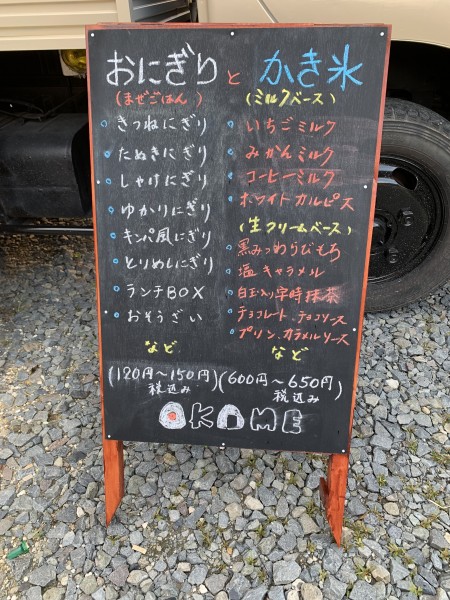 おにぎり と かき氷
(まぜごはん)
きつねにぎり
たぬきにぎり
しゃけにぎり
ゆかりにぎり
キンパ風にぎり
とりめしにぎり
ランチBOX
おそうざい
など
(120円〜150円)
税込み
(ミルクベース)
いちごミルク
みかんミルク
コーヒーミルク
ホワイトカルピス
(生クリームベース)
黒みつわらびもち
塩キャラメル
白玉入り宇時抹茶
チョコレート.チョコソース
プリン.カラメルソース
など
(600円〜650円)
税込み
OKOME